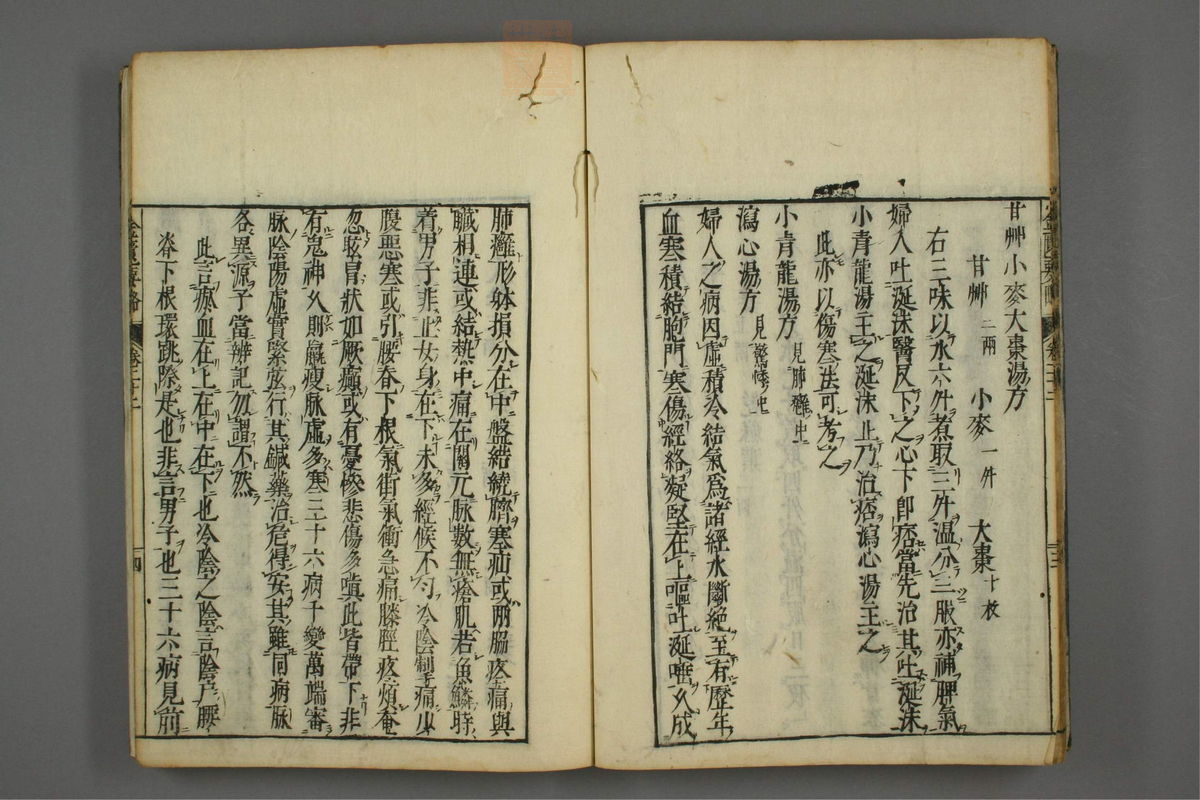 甘艸小麥大棗湯方
甘艸二兩 小麥一升 大棗十枚
右三味以水六升煮取三升温分三服亦補脾氣
婦人吐涎沫醫反下之心下即痞當先治其吐涎沫
小青龍湯主之涎沫止乃治痞瀉心湯主之
此亦以傷寒法可考之
小青龍湯方見肺癰中
瀉心湯方見驚悸中
婦人之病因虛積冷結氣爲諸經水斷絕至有歷年
血寒積結胞門寒傷經絡凝堅在上嘔吐涎唾久成
肺癰形躰損分在中盤結繞臍寒疝或兩脇疼痛與
臟相連或結熱中痛在關元脉數無瘡肌若魚鱗時
着男子非止女身在下未多經候不勻冷陰掣痛少
腹惡寒或引腰脊下根氣街氣衝急痛膝脛疼煩奄
忽眩冒狀如厥癲或有憂慘悲傷多嗔此皆帶下非
有鬼神久則羸瘦脉虛多寒三十六病千變萬端審
脉陰陽虛實緊弦行其鍼藥治危得安其雖同病脉
各異源子當辨記勿謂不然
此言瘀血在上在中在下也冷陰之陰言陰戶腰
脊下根環跳際是也非言男子也三十六病見前
金匱要略 卷二十二 四